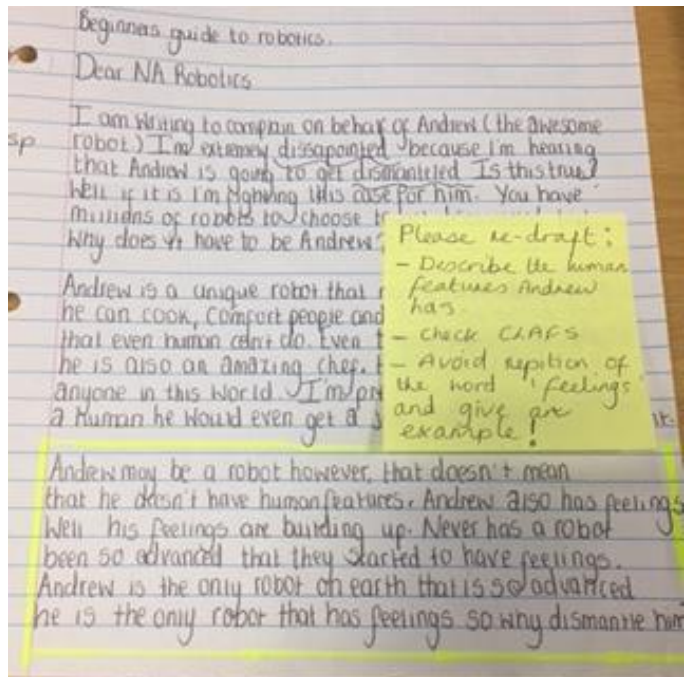 Beginners guide to robotics.
Dear NA Robotics
I am writing to complain on behalf of Andrew (the awesome
sp
robot) I'm extremely dissapointed because I'm hearing
that Andrew is going to get dismanteled Is this true?
Well if it is I'm fighting this case for him. You have
millions of robots to choose
Why does it have to be Andrew?
Andrew is a unique robot that
he can cook, comfort people and
that even human can't do. Even
he is also an amazing chef.
anyone in this world. I'm
a human he would even get a
it.
Please re-draft:
- Describe the human
features Andrew
has.
- Check CLAFS
- Avoid repition of
the word 'feelings'
and give an
example!
Andrew may be a robot however, that doesn't mean
that he doesn't have human features. Andrew also has feelings
Well his feelings are building up. Never has a robot
been so advanced that they started to have feelings.
Andrew is the only robot on earth that is so advanced
he is the only robot that has feelings so why dismantle him